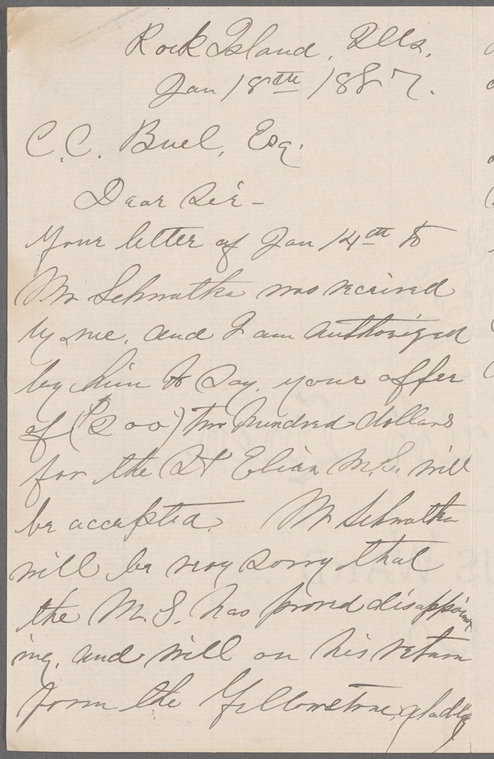 Rock Island, Ills.
Jan 18th 1887.
C.C. Buel, Esq.
Dear Sir-
Your letter of Jan 14th to
Mr Schwatka was received
by me, and I am authorized
by him to say, your offer
of ($200) two hundred dollars
for the St Elias M.S. will
be accepted. Mr Schwatka
will be very sorry that
the M.S. has proved disappoint
ing, and will on his return
from the Yellowstone, gladly